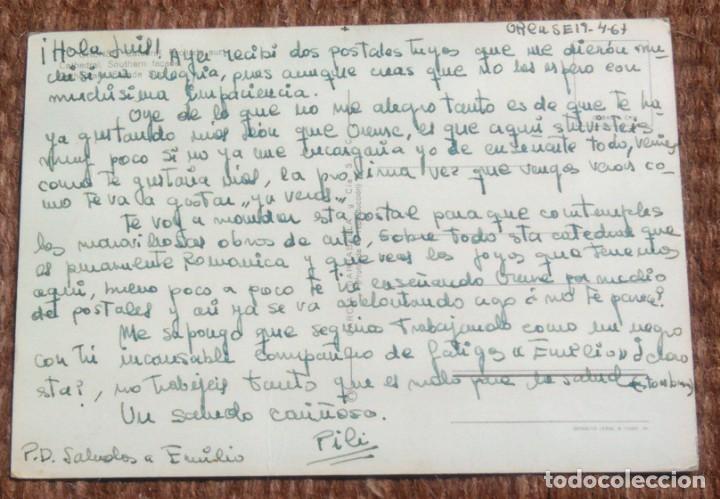 ORENSE 19-4-67
¡Hola Luis!! Ayer recibi dos postales tuyas que me dieron mu-
chisima alegria, pues aunque creas que no las espero con
muchisima impaciencia.
Oye de lo que no me alegro tanto es de que te ha-
ya gustando mas León que Orense, es que aqui stuvisteis
muy poco si no ya me encargaria yo de enseñarte todo, verias
como te gustaria mas, la proxima vez que vengas veras co-
mo te va a gustar "ya veras".
Te voy a mandar sta postal para que contemples
las maravillosas obras de arte, sobre todo sta catedral que
es puramente Romanica y que veas las joyas que tenemos
aqui, bueno poco a poco te ire enseñando Orense por medio
de postales y asi ya se va adelantando algo ¿ no te parece?
Me supongo que seguiras trabajando como un negro
con tu incansable compañero de fatigas "Emilio" ¿ claro
sta?, no trabajeis tanto que es malo para la salud
Un saludo cariñoso.
Pili
P.D. Saludos a Emilio
Cathedral, Southern facade
todocoleccion